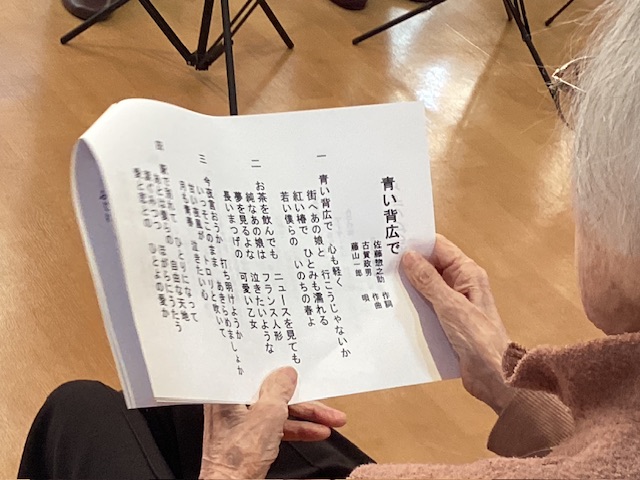 青い背広で
佐藤惣之助 作詞
古賀政男 作曲
藤山一郎 唄
一
青い背広で 心も軽く
街へあの娘と 行こうじゃないか
紅い椿で ひとみも濡れる
若い僕らの いのちの春よ
二
お茶を飲んでも ニュースを見ても
純なあの娘は フランス人形
夢を見るよな 泣きたいような
長いまつげの 可愛い乙女
三
今夜言おうか 打ち明けようか
いっそこのまま あきらめましょか
甘い夜風が トロリと吹いて
月も青春 泣きたい心
四
ひとりになって
自由な天地